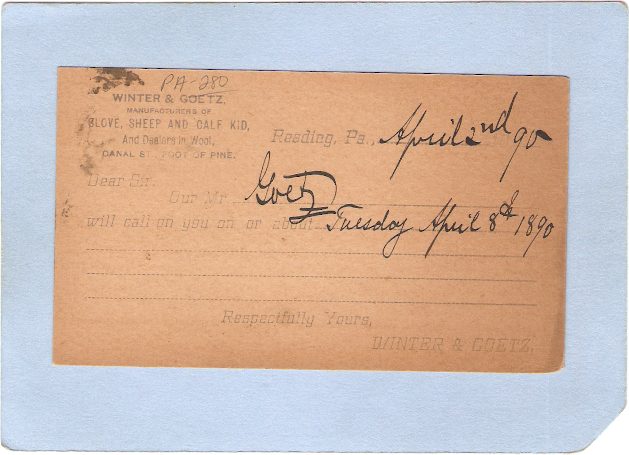 PA-280
WINTER & GOETZ,
MANUFACTURERS OF
GLOVE, SHEEP AND CALF KID,
And Dealers in Wool,
CANAL ST., FOOT OF PINE.
Reading, Pa., April 2nd 90
Dear Sir:
Our Mr. Goetz
will call on you on or about Tuesday April 8th 1890
Respectfully Yours,
WINTER & GOETZ.